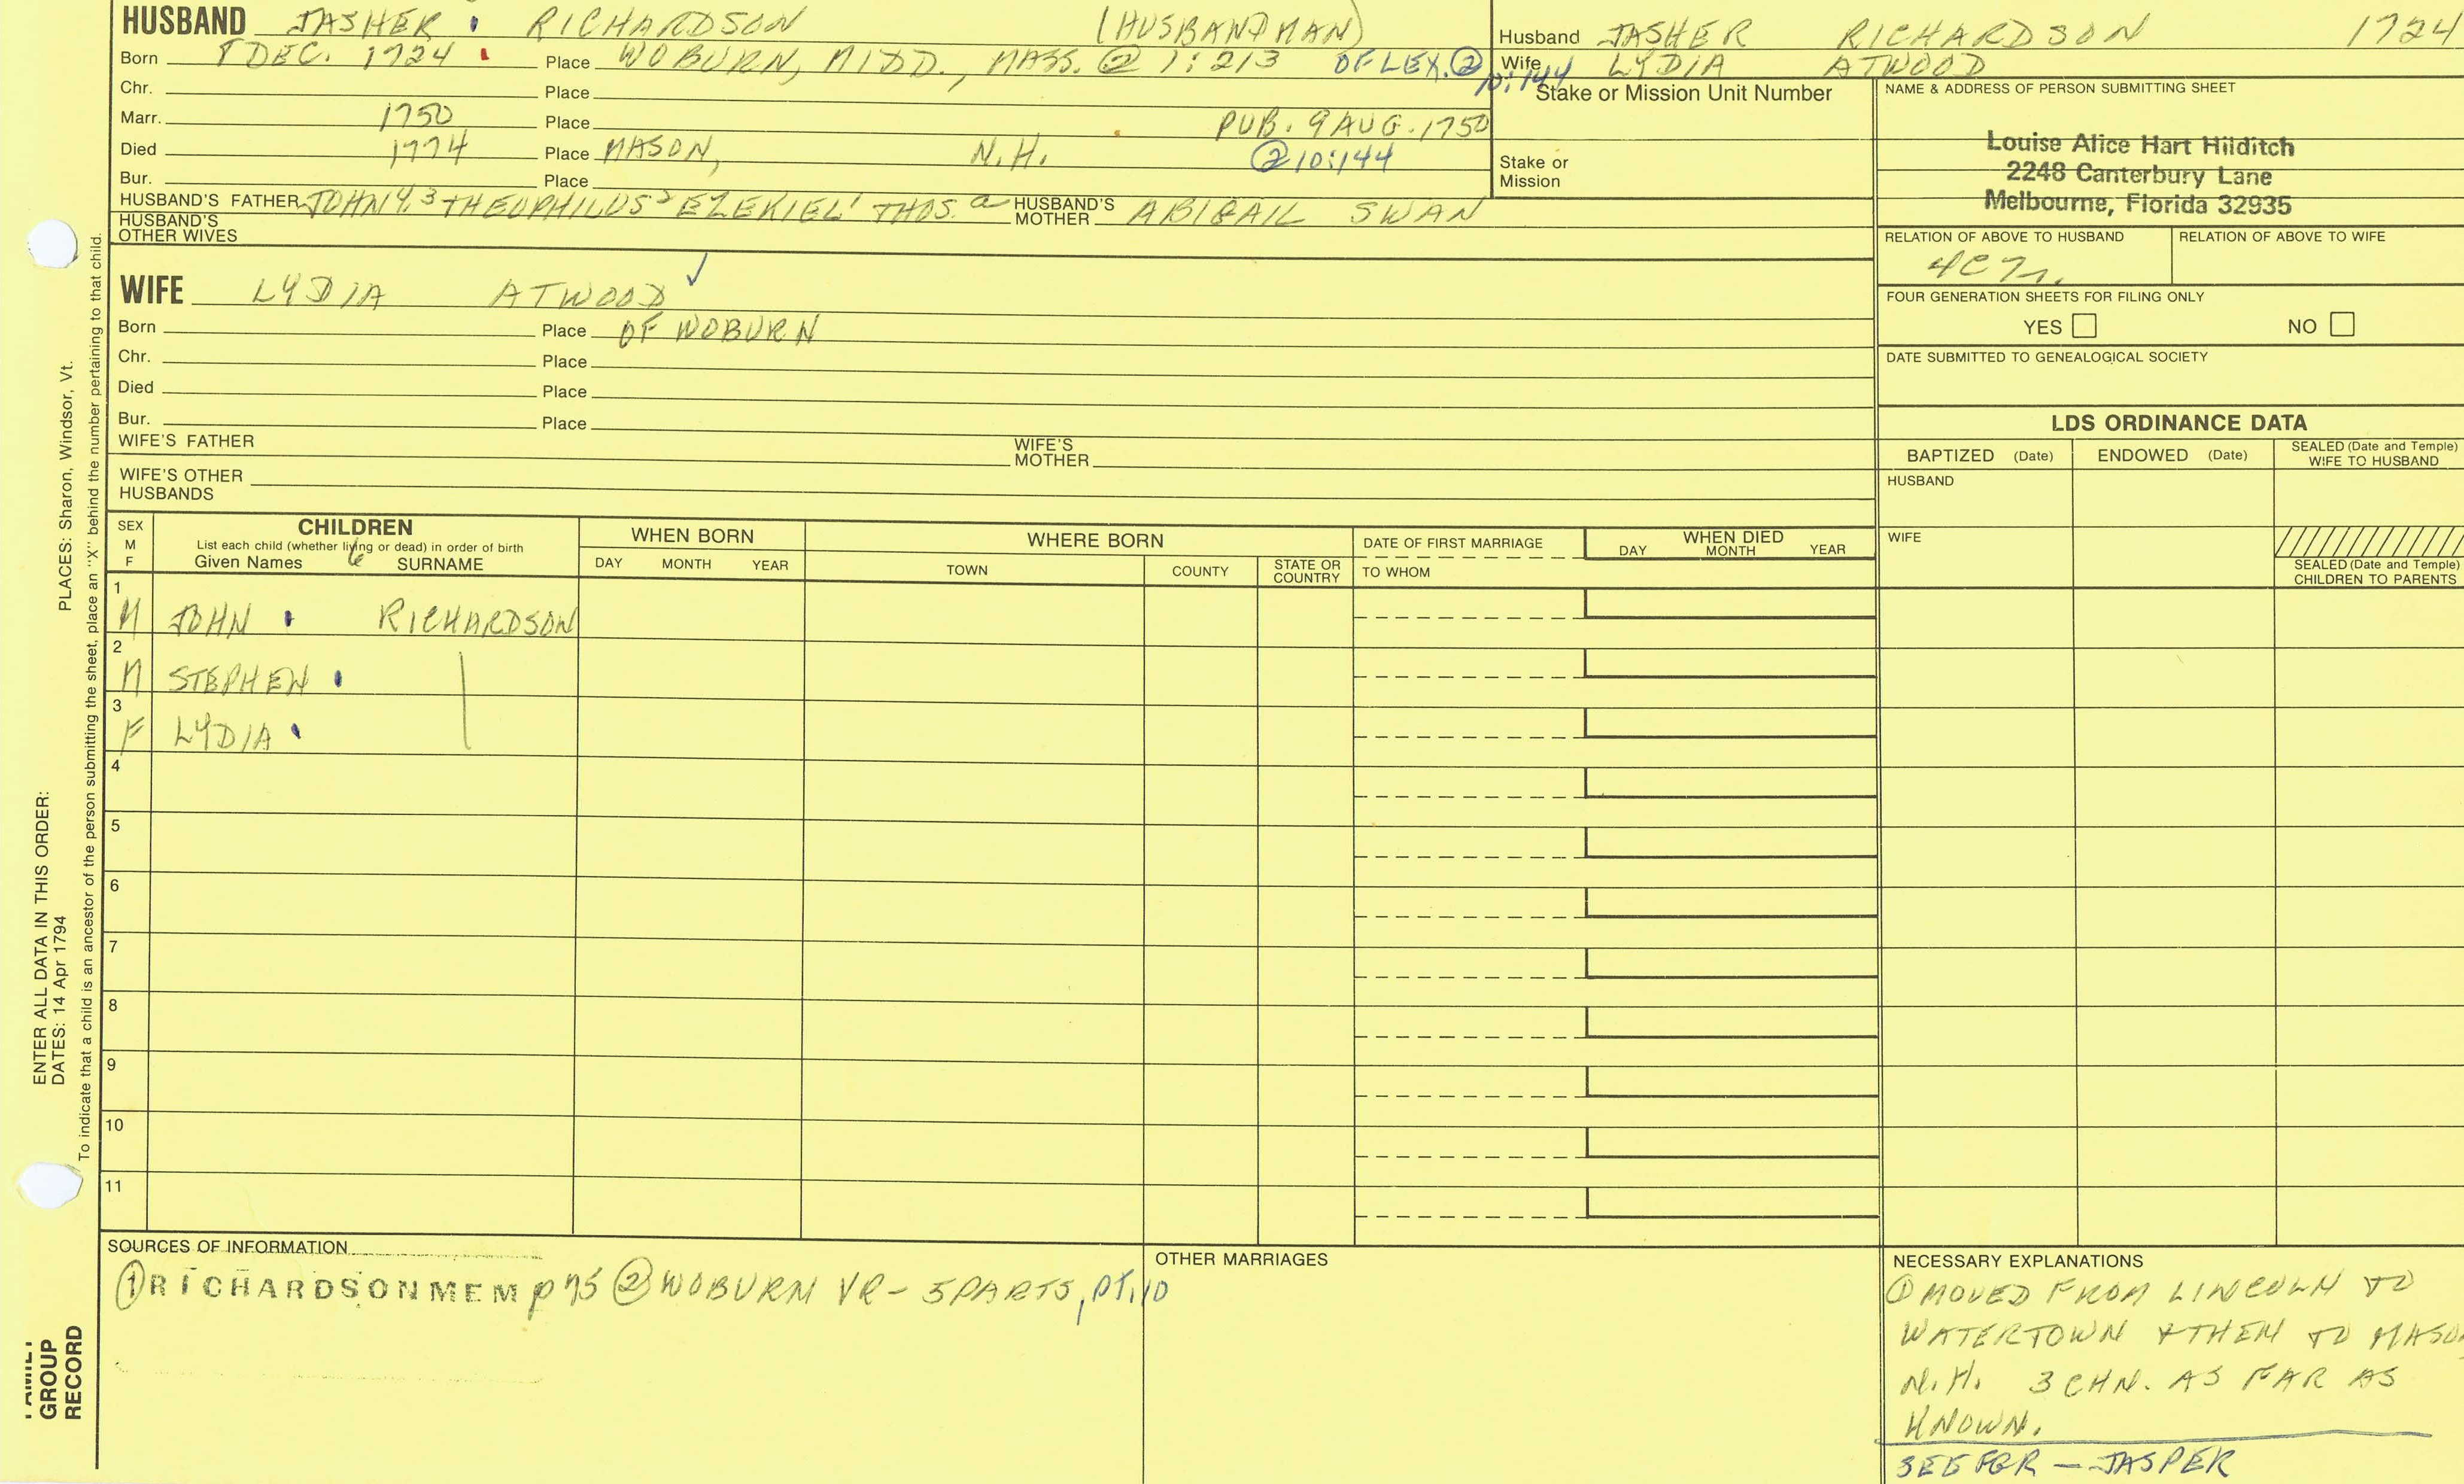 HUSBAND JASHER RICHARDSON (HUSBANDMAN)
Born 8 DEC. 1724 Place WOBURN, MIDD., MASS. @ 1:213 OF LEX. ② 10:144
Chr. Place
Marr. 1750 Place PUB. 9 AUG. 1750
Died 1774 Place MASON, N.H. ② 10:144
Bur. Place
HUSBAND'S FATHER JOHN 4. 3 THEOPHILUS 2 EZEKIEL 1 THOS. a HUSBAND'S MOTHER ABIGAIL SWAN
HUSBAND'S OTHER WIVES
Husband JASHER RICHARDSON 1724
Wife LYDIA ATWOOD
Stake or Mission Unit Number
Stake or Mission
NAME & ADDRESS OF PERSON SUBMITTING SHEET
Louise Alice Hart Hilditch
2248 Canterbury Lane
Melbourne, Florida 32935
RELATION OF ABOVE TO HUSBAND RELATION OF ABOVE TO WIFE
FOUR GENERATION SHEETS FOR FILING ONLY
YES NO
DATE SUBMITTED TO GENEALOGICAL SOCIETY
WIFE LYDIA ATWOOD ✓
Born Place OF WOBURN
Chr. Place
Died Place
Bur. Place
WIFE'S FATHER WIFE'S MOTHER
WIFE'S OTHER HUSBANDS
LDS ORDINANCE DATA
BAPTIZED (Date) ENDOWED (Date) SEALED (Date and Temple) WIFE TO HUSBAND
HUSBAND
WIFE
SEALED (Date and Temple) CHILDREN TO PARENTS
SEX M F
CHILDREN
List each child (whether living or dead) in order of birth
Given Names SURNAME
WHEN BORN
DAY MONTH YEAR
WHERE BORN
TOWN COUNTY STATE OR COUNTRY
DATE OF FIRST MARRIAGE
TO WHOM
WHEN DIED
DAY MONTH YEAR
1 M JOHN RICHARDSON
2 M STEPHEN
3 F LYDIA
4
5
6
7
8
9
10
11
SOURCES OF INFORMATION
① RICHARDSON MEM p 75 ② WOBURN VR - 5 PARTS, PT. 10
OTHER MARRIAGES
NECESSARY EXPLANATIONS
① MOVED FROM LINCOLN TO
WATERTOWN & THEN TO MASON
N.H. 3 CHN. AS FAR AS
KNOWN.
SEE FGR — JASPER
PLACES: Sharon, Windsor, Vt.
ENTER ALL DATA IN THIS ORDER:
DATES: 14 Apr 1794
To indicate that a child is an ancestor of the person submitting the sheet, place an "X" behind the number pertaining to that child.
FAMILY
GROUP
RECORD